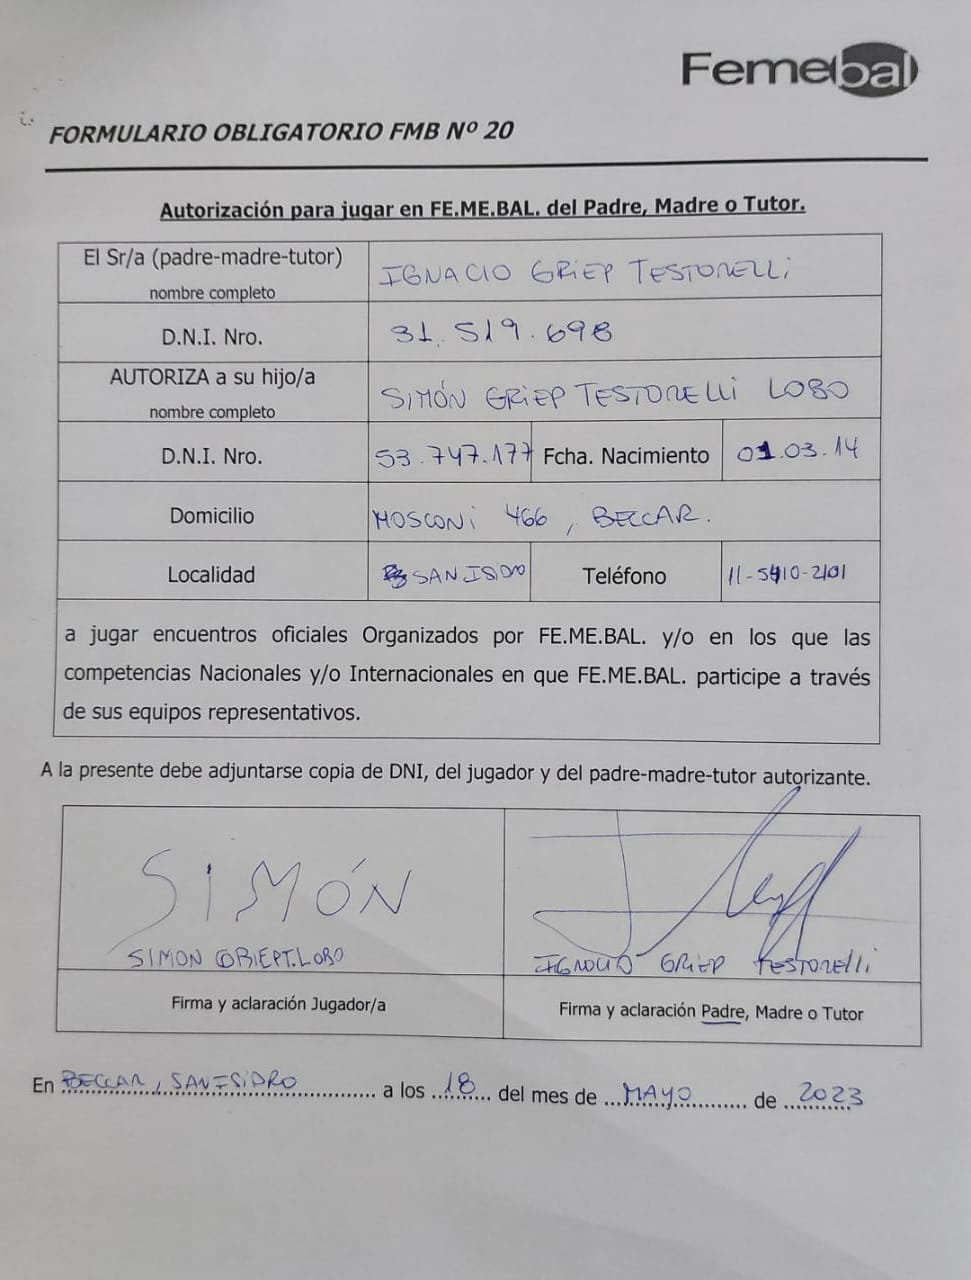 Femebal
FORMULARIO OBLIGATORIO FMB Nº 20
Autorización para jugar en FE.ME.BAL. del Padre, Madre o Tutor.
El Sr/a (padre-madre-tutor)
nombre completo
IGNACIO GRIEP TESTORELLI
D.N.I. Nro.
31.519.698
AUTORIZA a su hijo/a
nombre completo
SIMÓN GRIEP TESTORELLI LOBO
D.N.I. Nro.
53.747.177
Fcha. Nacimiento
01.03.14
Domicilio
MOSCONI 466, BECCAR.
Localidad
SAN ISIDRO
Teléfono
11-5410-2101
a jugar encuentros oficiales Organizados por FE.ME.BAL. y/o en los que las
competencias Nacionales y/o Internacionales en que FE.ME.BAL. participe a través
de sus equipos representativos.
A la presente debe adjuntarse copia de DNI, del jugador y del padre-madre-tutor autorizante.
SIMÓN
SIMON GRIEP T. LOBO
IGNACIO GRIEP TESTORELLI
Firma y aclaración Jugador/a
Firma y aclaración Padre, Madre o Tutor
En BECCAR, SAN ISIDRO a los 18 del mes de MAYO de 2023